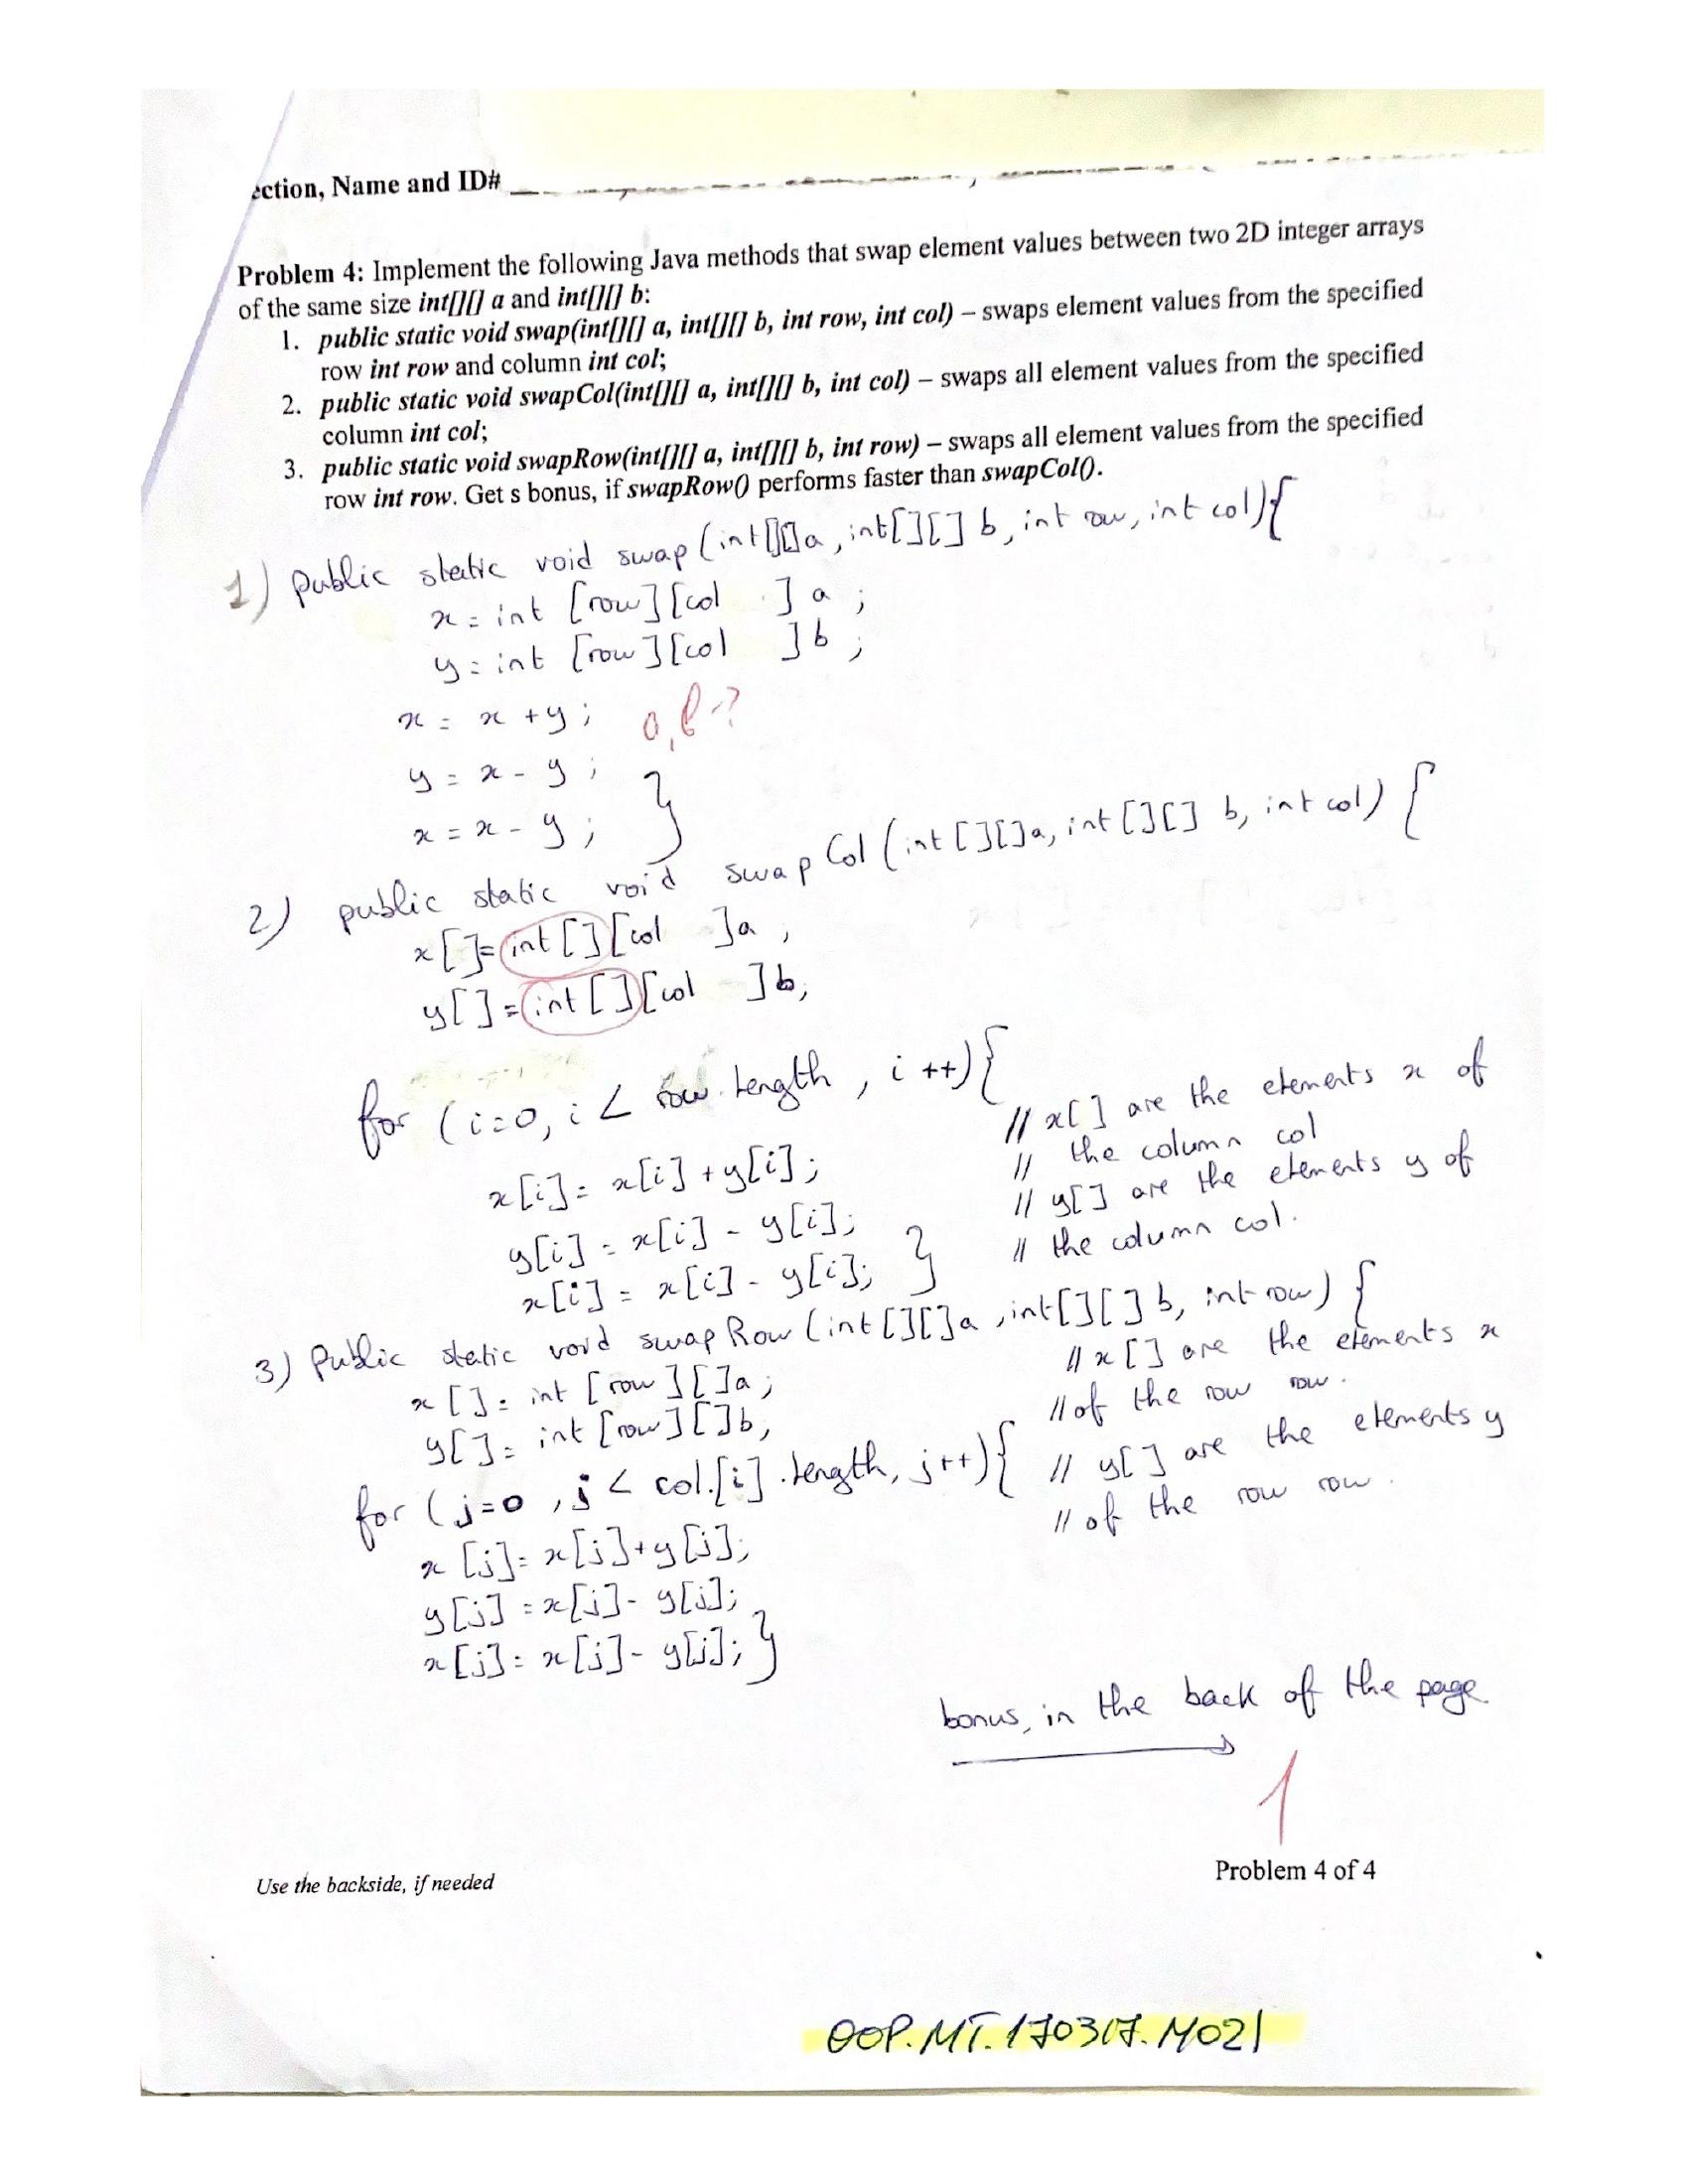 ection, Name and ID#
Problem 4: Implement the following Java methods that swap element values between two 2D integer arrays
of the same size int[][] a and int[][] b:
1. public static void swap(int[][] a, int[][] b, int row, int col) – swaps element values from the specified
row int row and column int col;
2. public static void swapCol(int[][] a, int[][] b, int col) – swaps all element values from the specified
column int col;
3. public static void swapRow(int[][] a, int[][] b, int row) – swaps all element values from the specified
row int row. Get s bonus, if swapRow() performs faster than swapCol().
1) public static void swap (int[][]a, int[][] b, int row, int col){
x = int [row][col ] a ;
y = int [row][col ] b ;
x = x + y ; a, b ?
y = x - y ;
x = x - y ; }
2) public static void swap Col (int[][]a, int[][] b, int col) {
x[]= int[][col ]a ,
y[]= int[][col ]b,
for (i=0, i < row.length, i++){
// x[] are the elements x of
x[i]= x[i]+y[i]; // the column col
// y[] are the elements y of
y[i] = x[i] - y[i]; // the column col.
x[i] = x[i] - y[i]; }
3) Public static void swap Row (int[][]a, int[][] b, int row) {
x [] = int [row][]a ; // x [] are the elements x
y[] = int [row][]b, // of the row row.
for (j=0 , j < col.[i].length, j++){ // y[] are the elements y
// of the row row.
x [j]= x[j]+y[j];
y[j] = x[j]- y[j];
x[j]= x[j]- y[j]; }
bonus, in the back of the page
1
Use the backside, if needed
Problem 4 of 4
OOP.MT.170317.M021